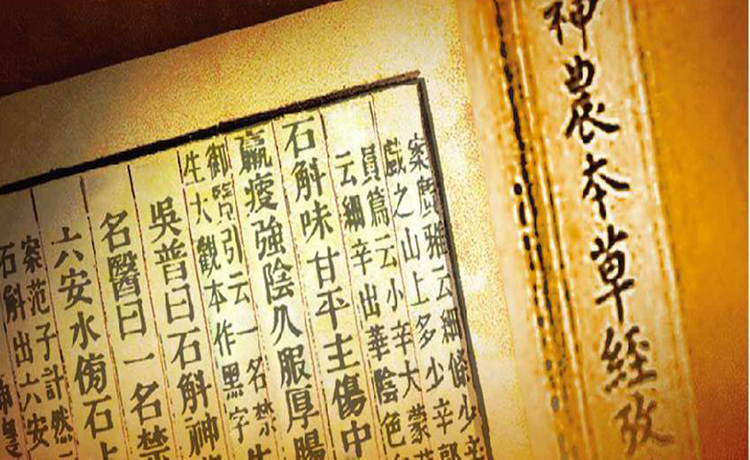 神農本草經攷
案廣雅云細條少辛
戲之山上多少辛郭
員篇云小辛大蒙
云細辛出華陰色
石斛味甘平主傷中
羸瘦強陰久服厚腸
御覽引云一名禁生
生大觀本作黑字
吳普曰石斛神
名醫曰一名禁
六安水傍石上
案范子計然
石斛出六安